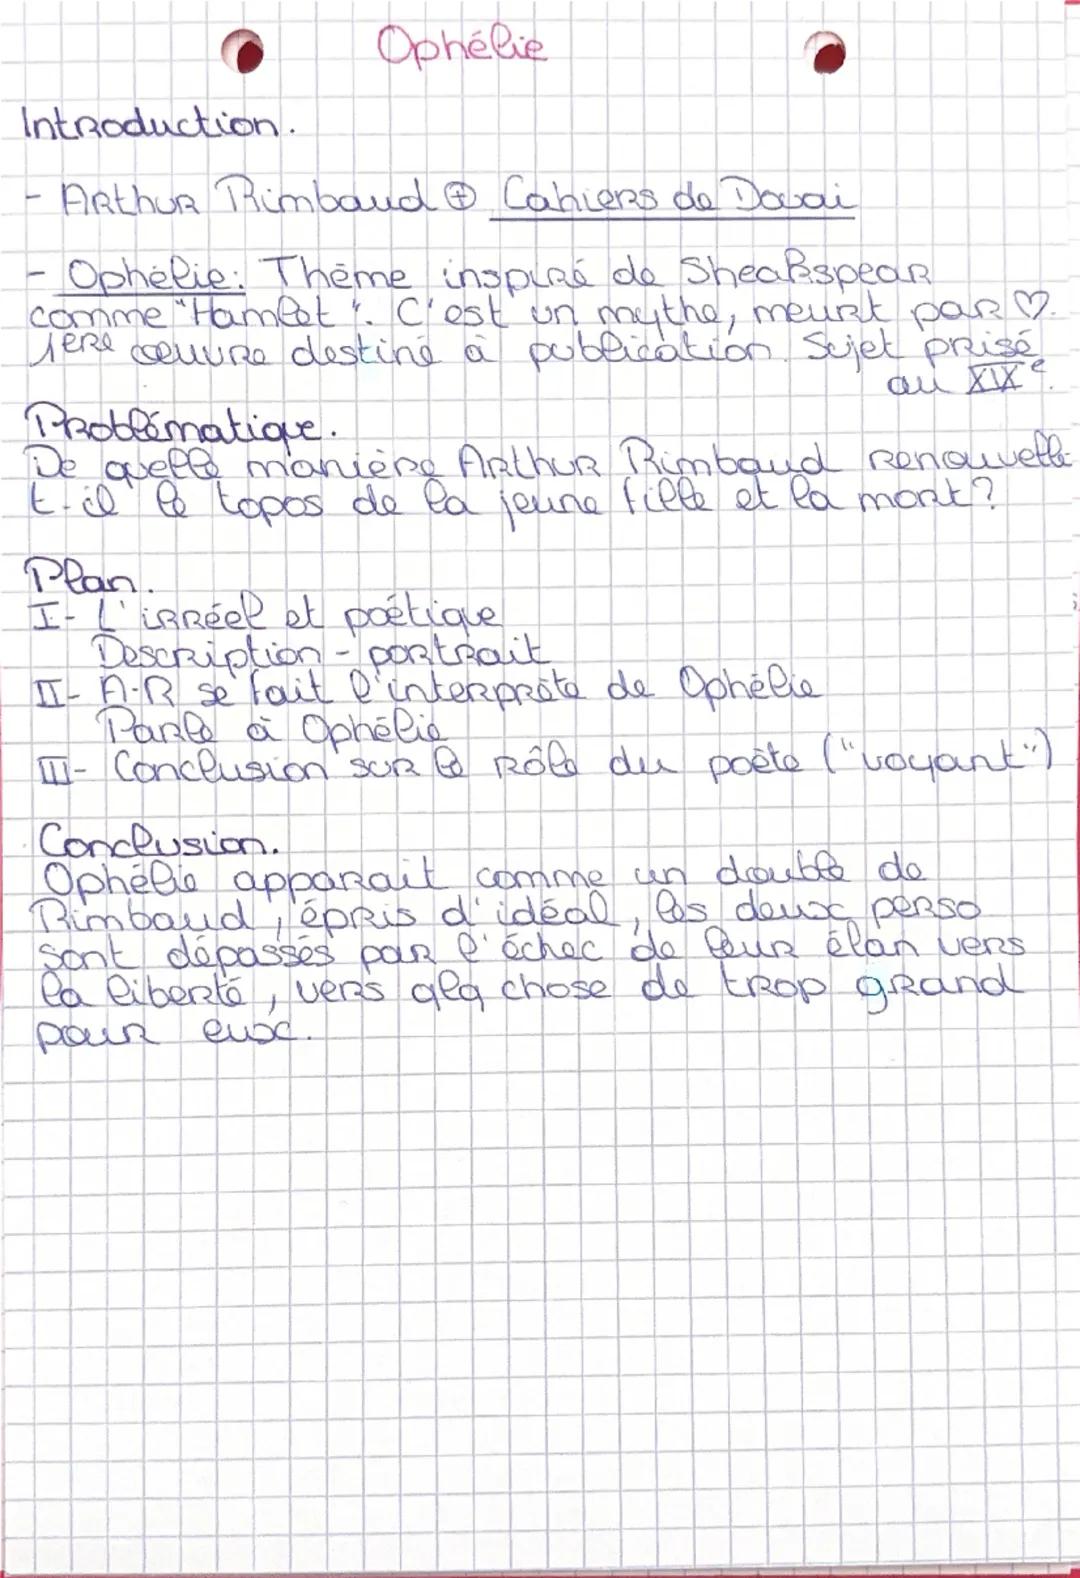 Ophélie
Introduction.
- Arthur Rimbaud ⊕ Cahiers de Douai
- Ophélie: Thème inspiré de Sheakspear
comme "Hamlet". C'est un mythe, meurt par ♡.
1ère oeuvre destiné à publication. Sujet prisé
au XIXe.
Problématique.
De quelle manière Arthur Rimbaud renouvelle
t-il le topos de la jeune fille et la mort?
Plan.
I- L'irréel et poétique
Description - portrait
II- A.R se fait l'interprète de Ophélie
Parle à Ophélie
III- Conclusion sur le rôle du poète ("voyant")
Conclusion.
Ophélie apparait comme un double de
Rimbaud, épris d'idéal, les deux perso
sont dépassés par l'échec de leur élan vers
la liberté, vers qlq chose de trop grand
pour eux.